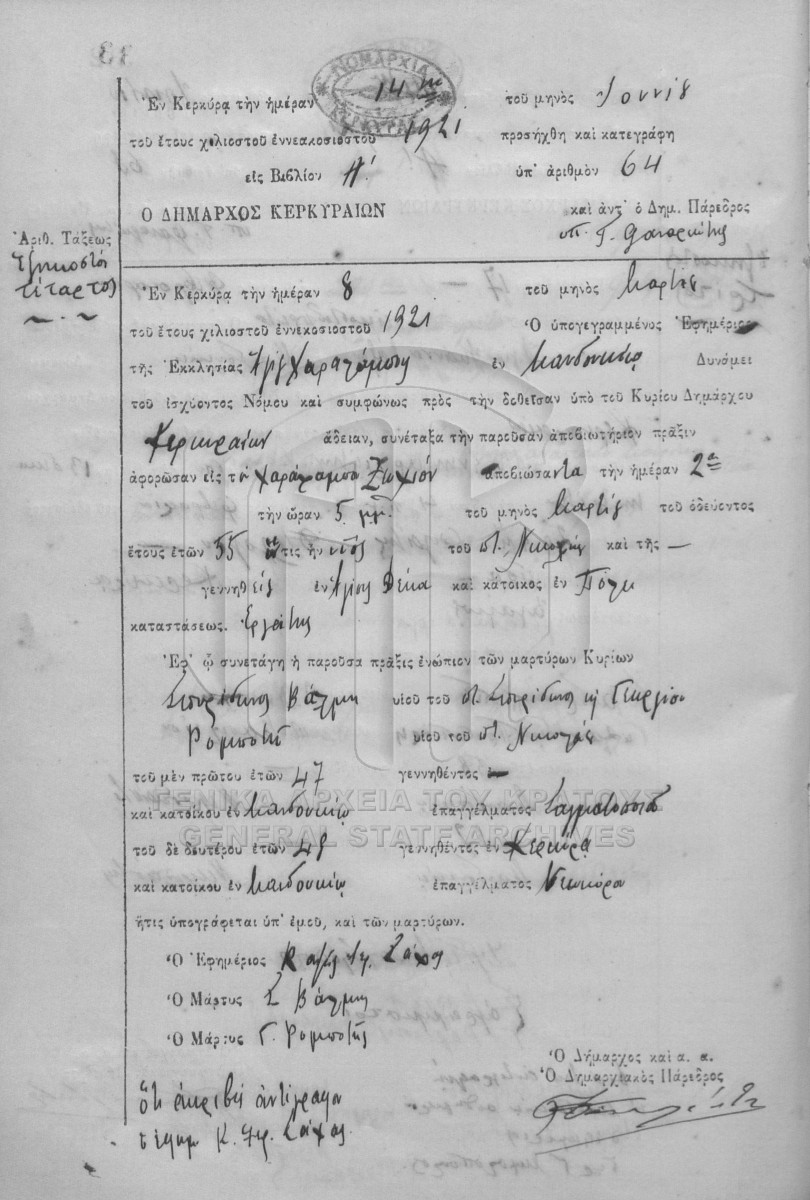 ΝΟΜΑΡΧΙΑ
ΚΕΡΚΥΡΑΣ
Ἐν Κερκύρᾳ τὴν ἡμέραν 14 τοῦ μηνὸς Ἰουνίου
τοῦ ἔτους χιλιοστοῦ ἐννεακοσιοστοῦ 1921 προσήχθη καὶ κατεγράφη
εἰς Βιβλίον Α! ὑπ' ἀριθμὸν 64
Ο ΔΗΜΑΡΧΟΣ ΚΕΡΚΥΡΑΙΩΝ καὶ ἀντ' ὁ Δημ. Πάρεδρος
υπ. Γ.
Ἀριθ. Τάξεως
Ἑξηκοστὸν
τέταρτον
Ἐν Κερκύρᾳ τὴν ἡμέραν 8 τοῦ μηνὸς Μαρτίου
τοῦ ἔτους χιλιοστοῦ ἐννεκοσιοστοῦ 1921 Ὁ ὑπογεγραμμένος Ἐφημέριος
τῆς Ἐκκλησίας Ἁγ. Χαραλάμπους ἐν Μανδουκίῳ Δυνάμει
τοῦ ἰσχύοντος Νόμου καὶ συμφώνως πρὸς τὴν δοθεῖσαν ὑπὸ τοῦ Κυρίου Δημάρχου
Κερκυραίων ἄδειαν, συνέταξα τὴν παροῦσαν ἀποβιωτήριον πρᾶξιν
ἀφορῶσαν εἰς τὸν Χαράλαμπον ἀποβιώσαντα τὴν ἡμέραν 2α
τὴν ὥραν 5 μμ. τοῦ μηνὸς Μαρτίου τοῦ ὁδεύοντος
ἔτους ἐτῶν 55 ὅστις ἦν υἱὸς τοῦ ποτ. Νικολάου καὶ τῆς —
γεννηθεὶς ἐν Ἁγίους Δέκα καὶ κάτοικος ἐν Πόλει
καταστάσεως. Ἐργάτης
Ἐφ' ᾧ συνετάγη ἡ παροῦσα πρᾶξις ἐνώπιον τῶν μαρτύρων Κυρίων
Σπυρίδωνος Βάλμη υἱοῦ τοῦ ποτ. Σπυρίδωνος κ Γεωργίου
Ρομποτῆ υἱοῦ τοῦ ποτ. Νικολάου
τοῦ μὲν πρώτου ἐτῶν 47 γεννηθέντος ἐν
καὶ κατοίκου ἐν Μανδουκίῳ ἐπαγγέλματος Σαγματοποιοῦ
τοῦ δὲ δευτέρου ἐτῶν 48 γεννηθέντος ἐν Κερκύρᾳ
καὶ κατοίκου ἐν Μανδουκίῳ ἐπαγγέλματος Νεωκόρου
ἥτις ὑπογράφεται ὑπ' ἐμοῦ, καὶ τῶν μαρτύρων.
Ὁ Ἐφημέριος
Ὁ Μάρτυς Σ Βάλμης
Ὁ Μάρτυς Γ. Ρομποτῆς
Ὁ Δήμαρχος καὶ α. α.
Ὁ Δημαρχιακὸς Πάρεδρος
Ὅτι ἀκριβὲς ἀντίγραφον
ΓΕΝΙΚΑ ΑΡΧΕΙΑ ΤΟΥ ΚΡΑΤΟΥΣ
GENERAL STATE ARCHIVES